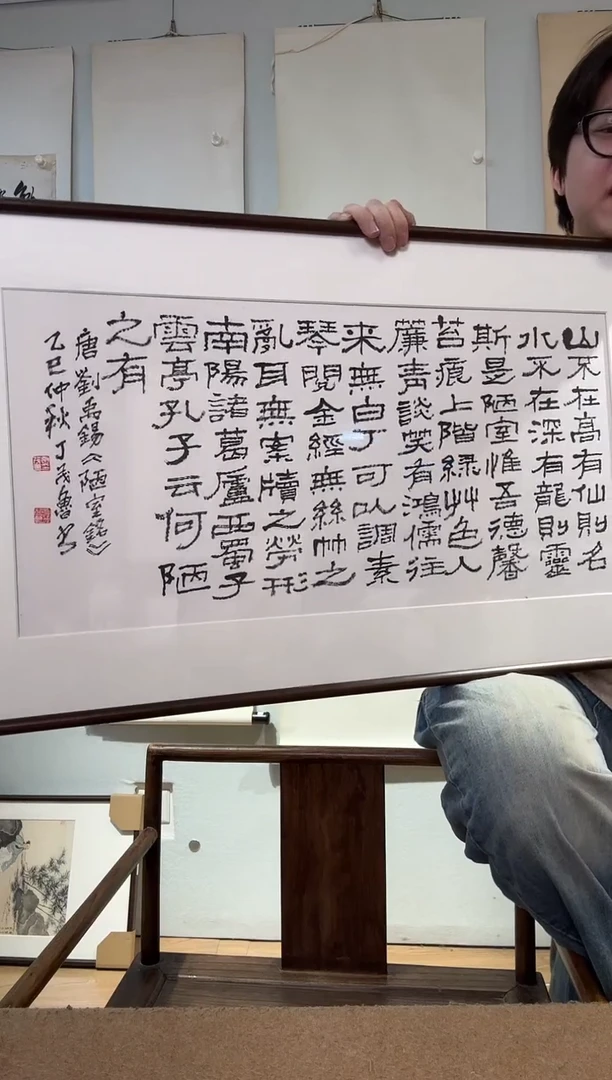 山不在高有仙則名
水不在深有龍則靈
斯是陋室惟吾德馨
苔痕上階緑艸色入
簾青談笑有鴻儒往
来無白丁可以調素
琴閱金經無絲竹之
亂耳無案牘之勞形
南陽諸葛廬西蜀子
雲亭孔子云何陋
之有
唐劉禹錫《陋室銘》
乙巳仲秋丁茂魯书